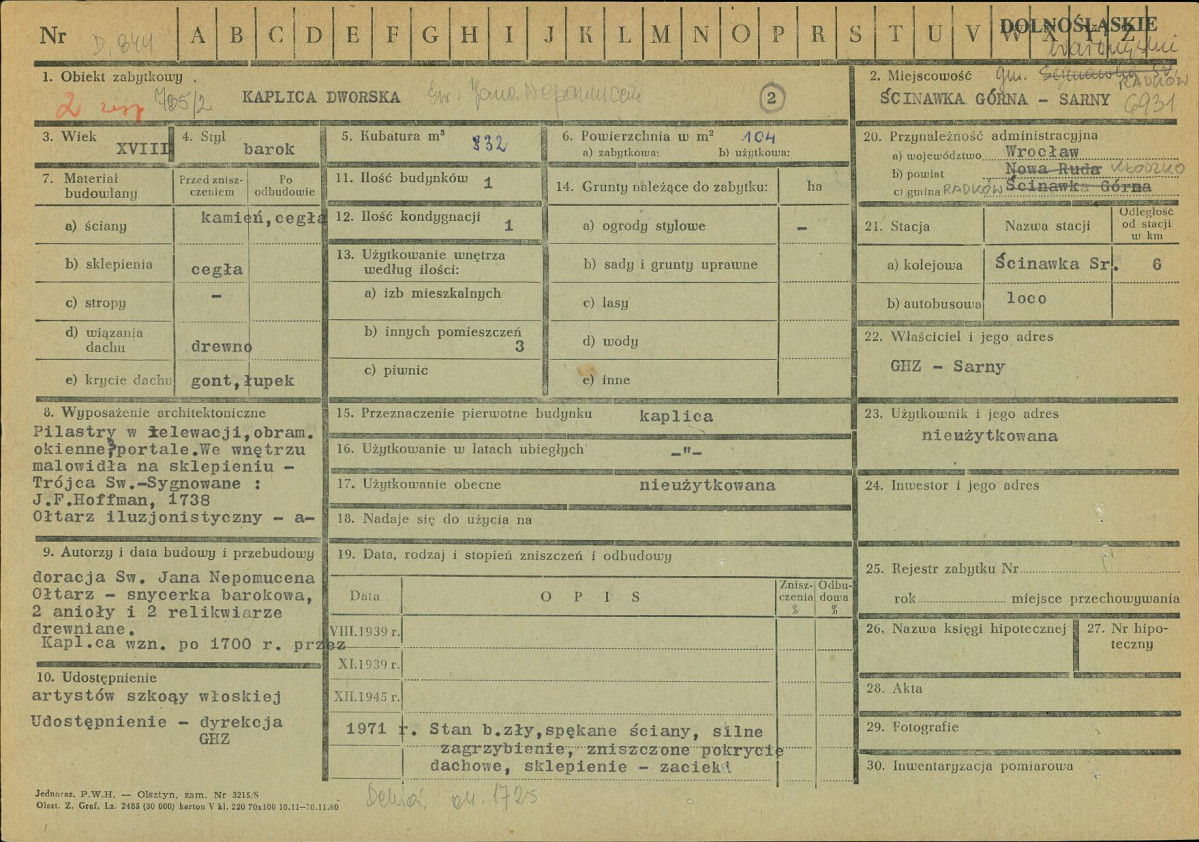 Nr D. 844 A B C D E F G H I J K L M N O P R S T U V W X Y Z DOLNOŚLĄSKIE
1. Obiekt zabytkowy
2 765/2
KAPLICA DWORSKA św. Jana Nepomucena 2
2. Miejscowość gm. Ścinawka Śr. RADKÓW
ŚCINAWKA GÓRNA – SARNY 6931
3. Wiek
XVIII
4. Styl
barok
5. Kubatura m³ 832
6. Powierzchnia w m² 104
a) zabytkowa: b) użytkowa:
7. Materiał budowlany
Przed zniszczeniem
Po odbudowie
a) ściany kamień,cegła
b) sklepienia cegła
c) stropy –
d) wiązania dachu drewno
e) krycie dachu gont,łupek
11. Ilość budynków 1
12. Ilość kondygnacji 1
13. Użytkowanie wnętrza
według ilości:
a) izb mieszkalnych
b) innych pomieszczeń
3
c) piwnic
14. Grunty należące do zabytku: ha
a) ogrody stylowe –
b) sady i grunty uprawne
c) lasy
d) wody
e) inne
8. Wyposażenie architektoniczne
Pilastry w żelewacji,obram.
okienne,portale.We wnętrzu
malowidła na sklepieniu –
Trójca Sw.-Sygnowane :
J.F.Hoffman, 1738
Ołtarz iluzjonistyczny – a-
9. Autorzy i data budowy i przebudowy
doracja Sw. Jana Nepomucena
Ołtarz – snycerka barokowa,
2 anioły i 2 relikwiarze
drewniane.
Kapl.ca wzn. po 1700 r. przez
10. Udostępnienie
artystów szkoąy włoskiej
Udostępnienie – dyrekcja
GHZ
15. Przeznaczenie pierwotne budynku kaplica
16. Użytkowanie w latach ubiegłych –"–
17. Użytkowanie obecne nieużytkowana
18. Nadaje się do użycia na
19. Data, rodzaj i stopień zniszczeń i odbudowy
Data O P I S Zniszczenia % Odbudowa %
VIII.1939 r.
XI.1939 r.
XII.1945 r.
1971 r. Stan b.zły,spękane ściany, silne
zagrzybienie, zniszczone pokrycie
dachowe, sklepienie – zacieki
20. Przynależność administracyjna
a) województwo Wrocław
b) powiat Nowa Ruda KŁODZKO
c) gmina RADKÓW Ścinawka Górna
21. Stacja Nazwa stacji Odległość od stacji w km
a) kolejowa Ścinawka Sr. 6
b) autobusowa loco
22. Właściciel i jego adres
GHZ – Sarny
23. Użytkownik i jego adres
nieużytkowana
24. Inwestor i jego adres
25. Rejestr zabytku Nr
rok miejsce przechowywania
26. Nazwa księgi hipotecznej
27. Nr hipoteczny
28. Akta
29. Fotografie
30. Inwentaryzacja pomiarowa
Jednoraz. P.W.H. — Olsztyn, zam. Nr 3215/S
Olszt. Z. Graf. Lz. 2485 (30 000) karton V kl. 220 70x100 10.11—30.11.60
ok. 1725